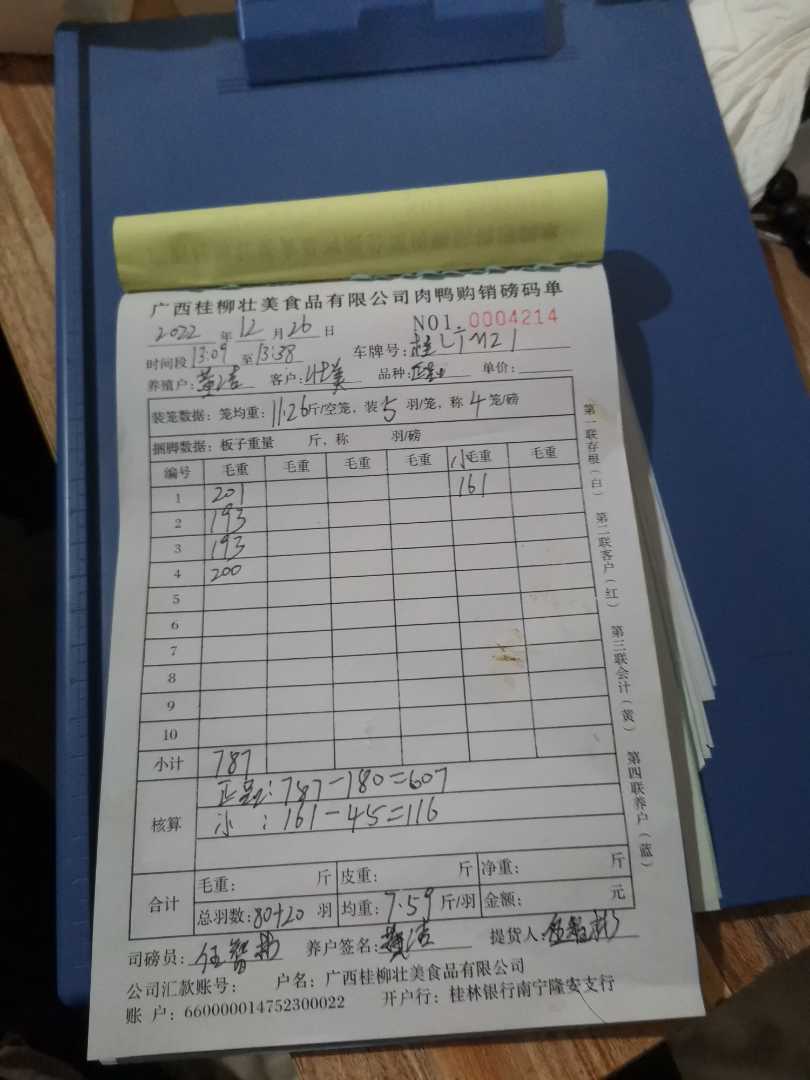 广西桂柳壮美食品有限公司肉鸭购销磅码单
2022 年 12 月 26 日 NO1. 0004214
时间段 13:09 至 13:38 车牌号:桂
养殖户:黄洁 客户:壮美 品种: 单价:
装笼数据:笼均重:11.26斤/空笼,装5羽/笼,称4笼/磅
捆脚数据:板子重量 斤,称 羽/磅
编号 毛重 毛重 毛重 毛重 小毛重 毛重
1 201 161
2 193
3 193
4 200
5
6
7
8
9
10
小计 787
核算 正品:787-180=607
小:161-45=116
合计 毛重: 斤 皮重: 斤 净重: 斤
总羽数:80+20 羽 均重:7.59 斤/羽 金额: 元
司磅员:任智彬 养户签名:黄洁 提货人:任智彬
公司汇款账号: 户名:广西桂柳壮美食品有限公司
账 户:660000014752300022 开户行:桂林银行南宁隆安支行
第一联存根(白) 第二联客户(红) 第三联会计(黄) 第四联养户(蓝)